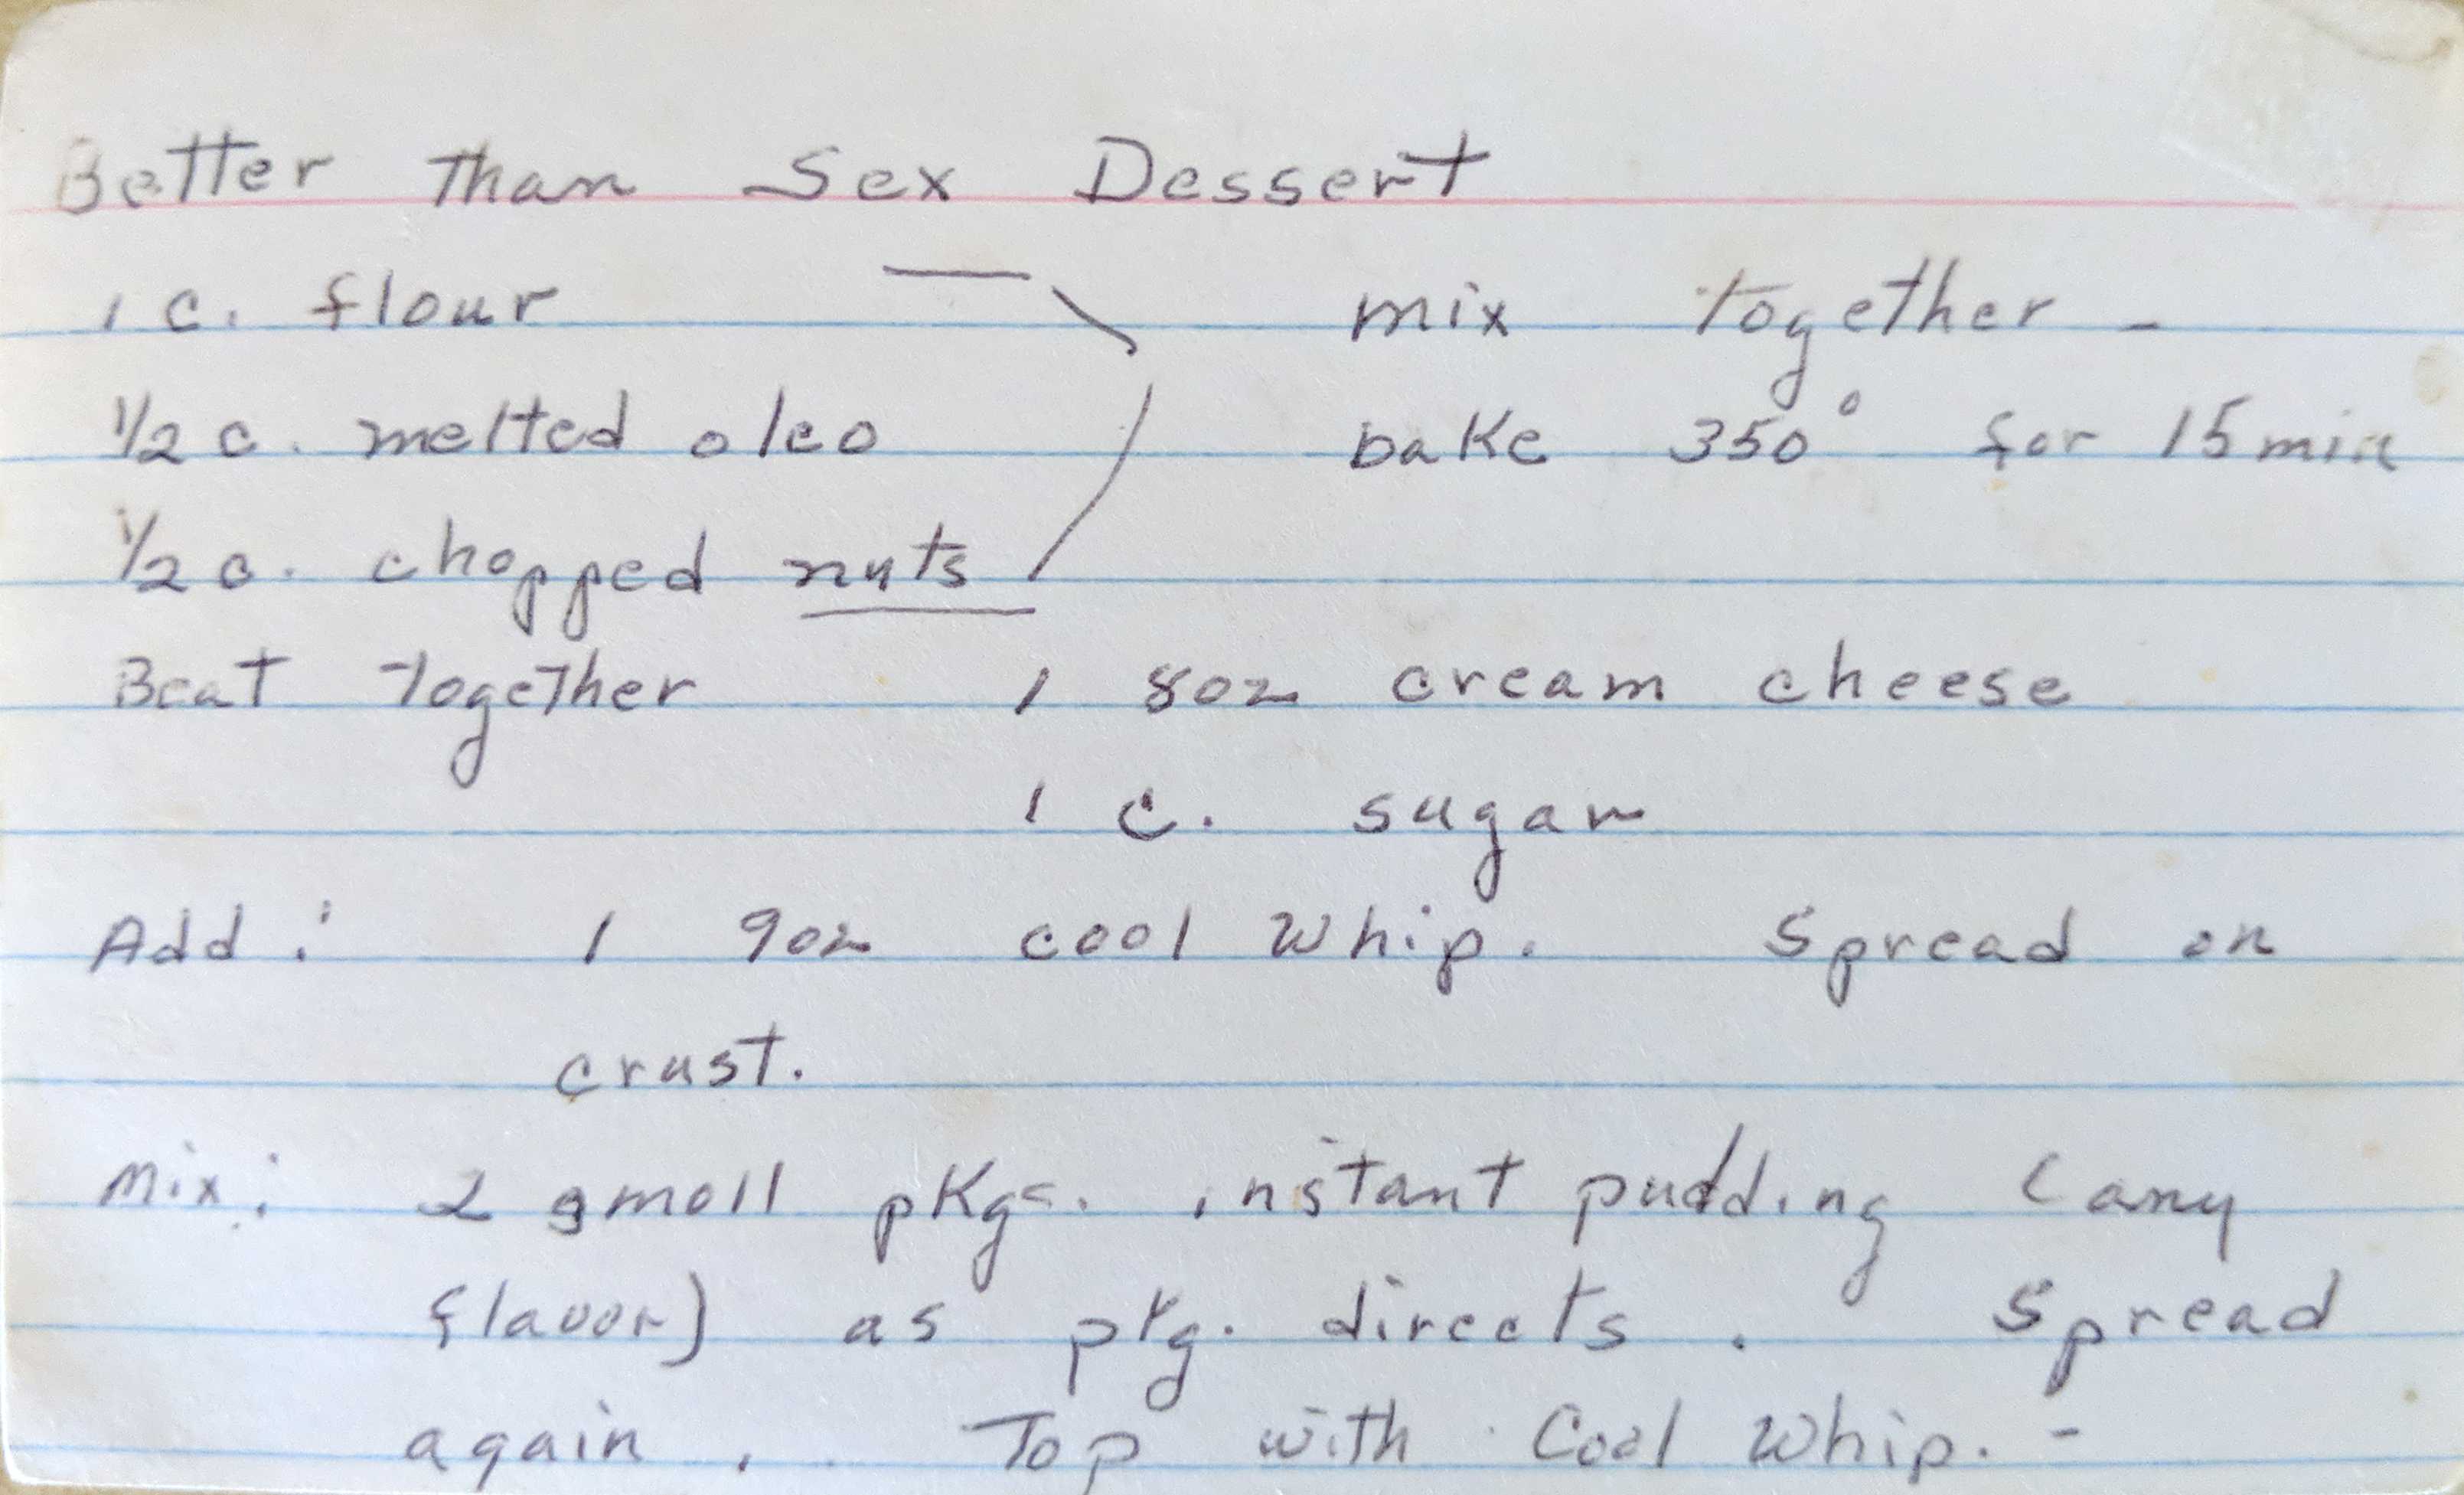 Better Than Sex Dessert
1 c. flour mix together -
1/2 c. melted oleo bake 350° for 15 min
1/2 c. chopped nuts
Beat together 1 8oz cream cheese
1 c. sugar
Add: 1 9oz cool whip. Spread on
crust.
Mix: 2 small pkgs. instant pudding (any
flavor) as pkg. directs. Spread
again. Top with Cool Whip. -